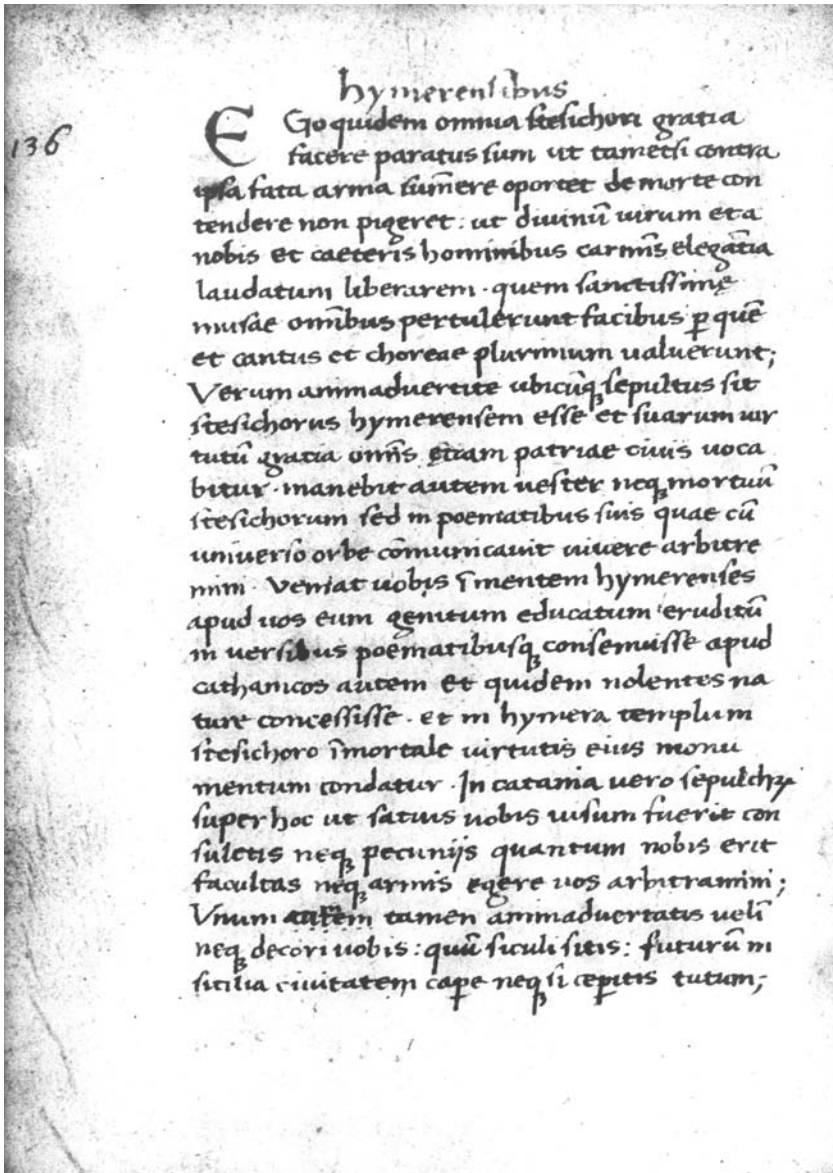 hymerensibus
EGo quidem omnia stesichori gratia
136
facere paratus sum ut tametsi contra
ipsa fata arma sumere oportet de morte con
tendere non pigeret : ut diuinū uirum et a
nobis et caeteris hominibus carmīs elegātia
laudatum liberarem · quem sanctissimę
musae omībus pertulerunt facibus ꝑ quē
et cantus et choreae plurimum ualuerunt;
Verum animaduertite ubicūqꝫ sepultus sit
stesichorus hymerensem esse et suarum uir
tutū gratia omīs etiam patriae ciuis uoca
bitur · manebit autem uester neqꝫ mortuū
stesichorum sed in poematibus suis quae cū
uniuerso orbe cōmunicauit uiuere arbitre
mini · Veniat uobis ī mentem hymerenses
apud uos eum genitum educatum eruditū
in uersibus poematibusqꝫ consenuisse apud
cathanicos autem et quidem nolentes na
ture concessisse · et in hymera templum
stesichoro īmortale uirtutis eius monu
mentum condatur · In catania uero sepulchꝝ
super hoc ut satius uobis uisum fuerit con
suletis neqꝫ pecunijs quantum nobis erit
facultas neqꝫ armis egere uos arbitramini;
Vnum autem tamen animaduertatis uelī
neqꝫ decori uobis : quū siculi sitis : futurū in
sicilia ciuitatem caꝑe neqꝫ si ceꝑitis tutum;